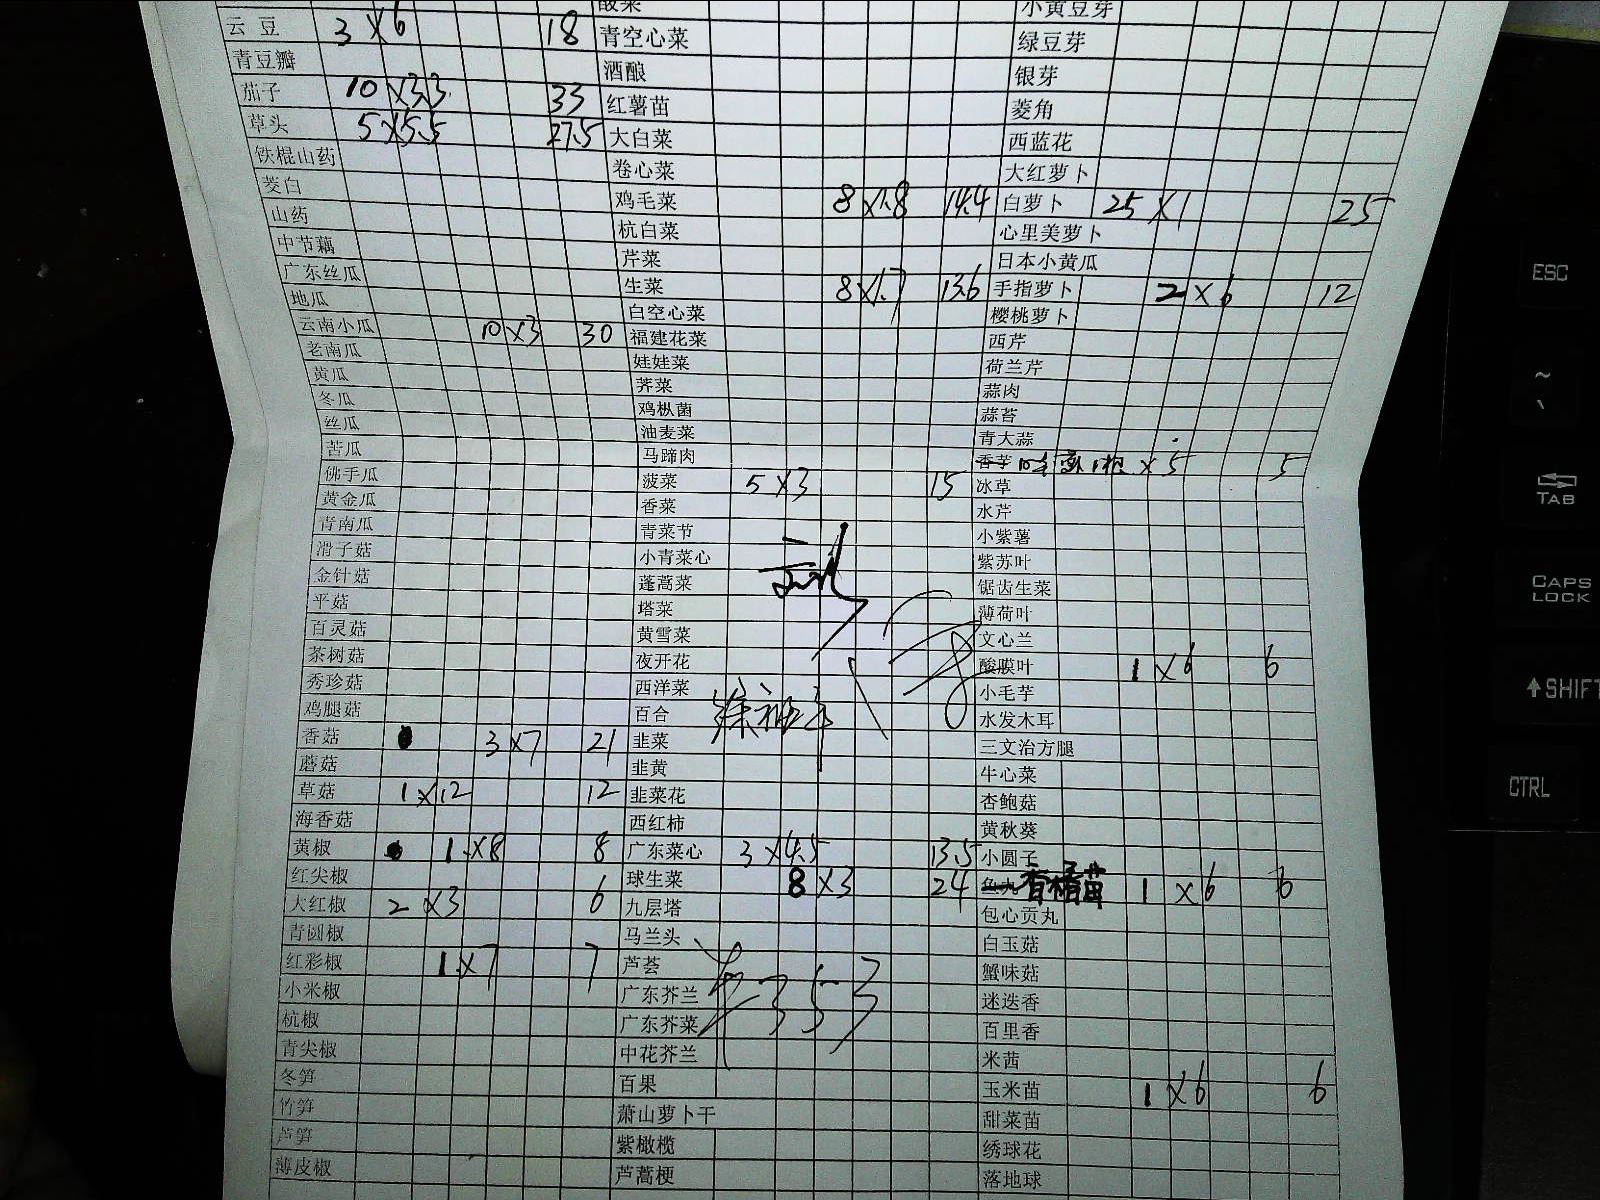 云豆 3×6 18 青空心菜 绿豆芽
青豆瓣 酒酿 银芽
茄子 10×3.3 33 红薯苗 菱角
草头 5×5.5 27.5 大白菜 西蓝花
铁棍山药 卷心菜 大红萝卜
茭白 鸡毛菜 8×1.8 14.4 白萝卜 25×1 25
山药 杭白菜 心里美萝卜
中节藕 芹菜 日本小黄瓜
广东丝瓜 生菜 8×1.7 13.6 手指萝卜 2×6 12
地瓜 白空心菜 樱桃萝卜
云南小瓜 10×3 30 福建花菜 西芹
老南瓜 娃娃菜 荷兰芹
黄瓜 荠菜 蒜肉
冬瓜 鸡枞菌 蒜苔
丝瓜 油麦菜 青大蒜
苦瓜 马蹄肉 香芋 ×5 5
佛手瓜 菠菜 5×3 15 冰草
黄金瓜 香菜 水芹
青南瓜 青菜节 小紫薯
滑子菇 小青菜心 紫苏叶
金针菇 蓬蒿菜 锯齿生菜
平菇 塔菜 薄荷叶
百灵菇 黄雪菜 文心兰
茶树菇 夜开花 酸膜叶 1×6 6
秀珍菇 西洋菜 小毛芋
鸡腿菇 百合 水发木耳
香菇 3×7 21 韭菜 三文治方腿
蘑菇 韭黄 牛心菜
草菇 1×12 12 韭菜花 杏鲍菇
海香菇 西红柿 黄秋葵
黄椒 1×8 8 广东菜心 3×4.5 13.5 小圆子
红尖椒 球生菜 8×3 24 鱼丸 香椿苗 1×6 6
大红椒 2×3 6 九层塔 包心贡丸
青圆椒 马兰头 白玉菇
红彩椒 1×7 7 芦荟 蟹味菇
小米椒 广东芥兰 353 迷迭香
杭椒 广东芥菜 百里香
青尖椒 中花芥兰 米茜
冬笋 百果 玉米苗 1×6 6
竹笋 萧山萝卜干 甜菜苗
芦笋 紫橄榄 绣球花
薄皮椒 芦蒿梗 落地球
ESC
~
TAB
CAPS LOCK
SHIFT
CTRL